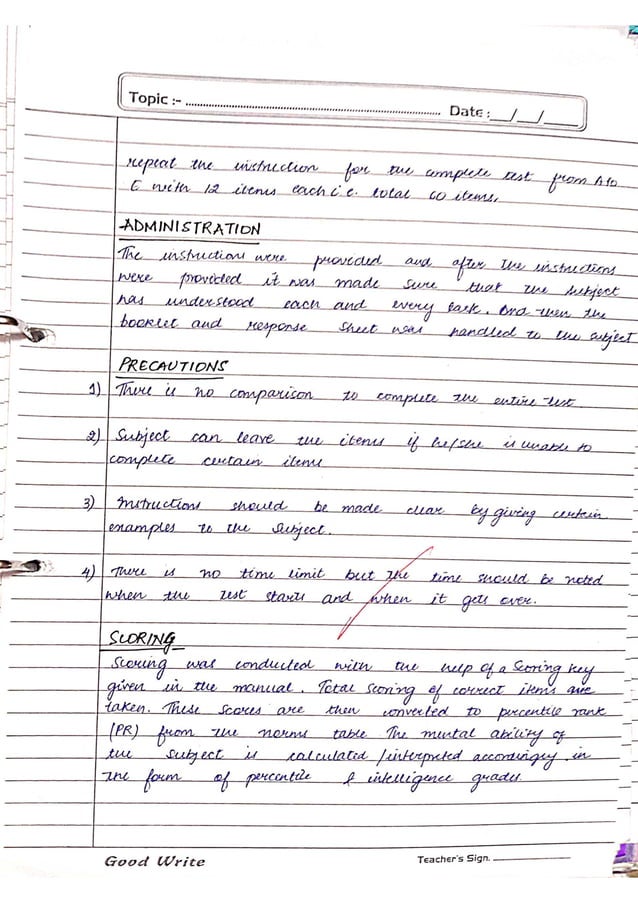 Topic :- ............ Date :__/__/____
repeat the instruction for the complete test from A to
E with 12 items each i.e. total 60 items.
ADMINISTRATION
The instructions were provided and after the instructions
were provided it was made sure that the subject
has understood each and every task. And then the
booklet and response sheet was handled to the subject
PRECAUTIONS
1) There is no comparison to complete the entire test
2) Subject can leave the items if he/she is unable to
complete certain items
3) Instructions should be made clear by giving certain
examples to the subject.
4) There is no time limit but the time should be noted
when the test starts and when it gets over.
SCORING
Scoring was conducted with the help of a Scoring key
given in the manual. Total scoring of correct items are
taken. These scores are then converted to percentile rank
(PR) from the norms table. The mental ability of
the subject is calculated / interpreted accordingly in
the form of percentile & intelligence grades.
Good Write Teacher's Sign.